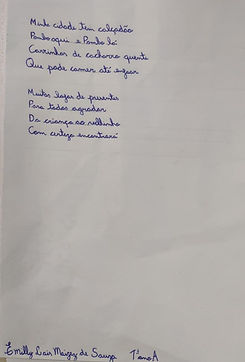 Minha cidade tem calçadão
Pombo aqui e Pombo lá
Carrinhos de cachorro quente
Que pode comer até enjoar

Muitas lojas de presentes
Para todos agradar
Da criança ao velhinho
Com certeza encontrará

Emilly Lais de Souza 1º ano A